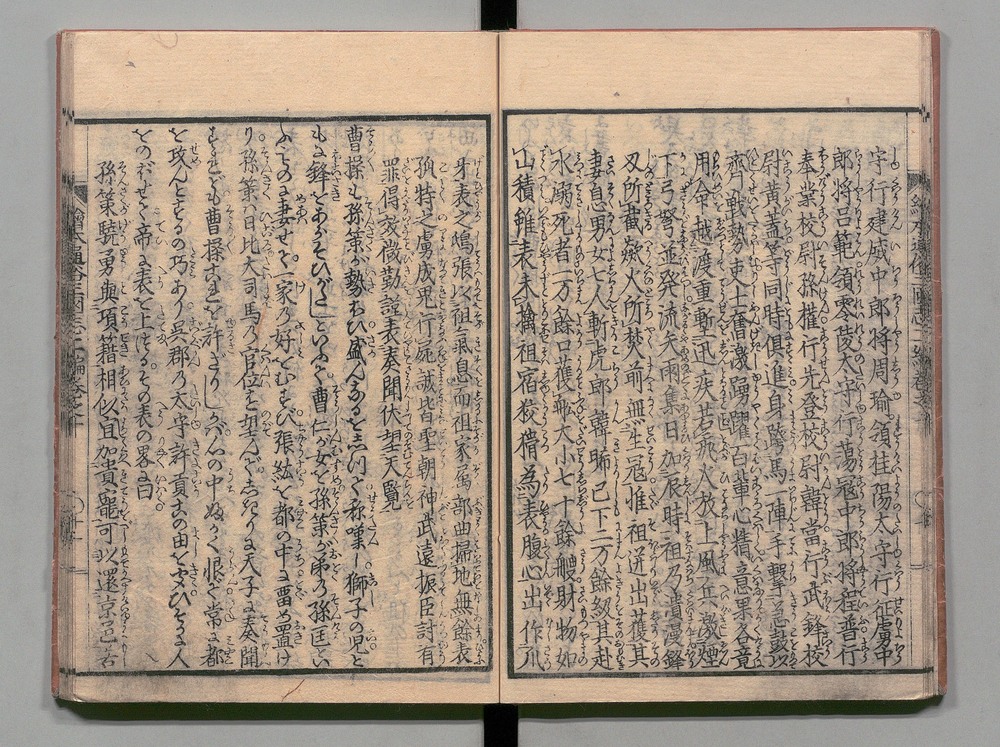 守行建威中郎将周瑜領桂陽太守行征虜中
郎将呂範領零陵太守行蕩寇中郎将程普行
奉業校尉孫權行先登校尉韓當行武鋒校
尉黄蓋等同時俱進身跨馬一陣手擊急鼓以
齊戰勢吏士奮激踴躍百軰心精意果各竟
用命越渡重塹迅疾若飛火放上風兵激煙
下弓弩並發流矢雨集日加辰時祖乃潰漫鋒
刃所截焱火所焚前無生寇惟祖迸出獲其
妻息男女七人斬虎郎韓晞已下二万餘級其赴
水溺死者一万餘口獲舩大小七十餘艘財物如
山積雖表未擒祖宿狡猾為表腹心出作爪
牙表之鴟張以祖氣息而祖家属部曲掃地無餘表
孤特之虜成鬼行屍誠皆聖朝神武遠振臣討有
罪得效微勤謹表奏聞伏望天覧
曹操も孫策が勢ひ盛んなるを志つて称嘆し獅子の児と
もに鋒をあらそひがたしといふて曹仁が女を孫策が弟の孫匡とい
ふものに妻せて一家の好をむすび張紘を都の中に畱め置け
り孫策ハ日比大司馬の官位を望んでしきりに天子に奏聞
すれども曹操これを許さゞりしかバ心の中ふかく恨て常に都
を攻んとするの巧あり呉郡の太守許貢この由をきひそかに人
をのぼせて帝に表を上げるその表の畧に曰
孫策驍勇與項籍相似宜加貴寵可以還京邑若
繪本通俗三國志二編巻之十